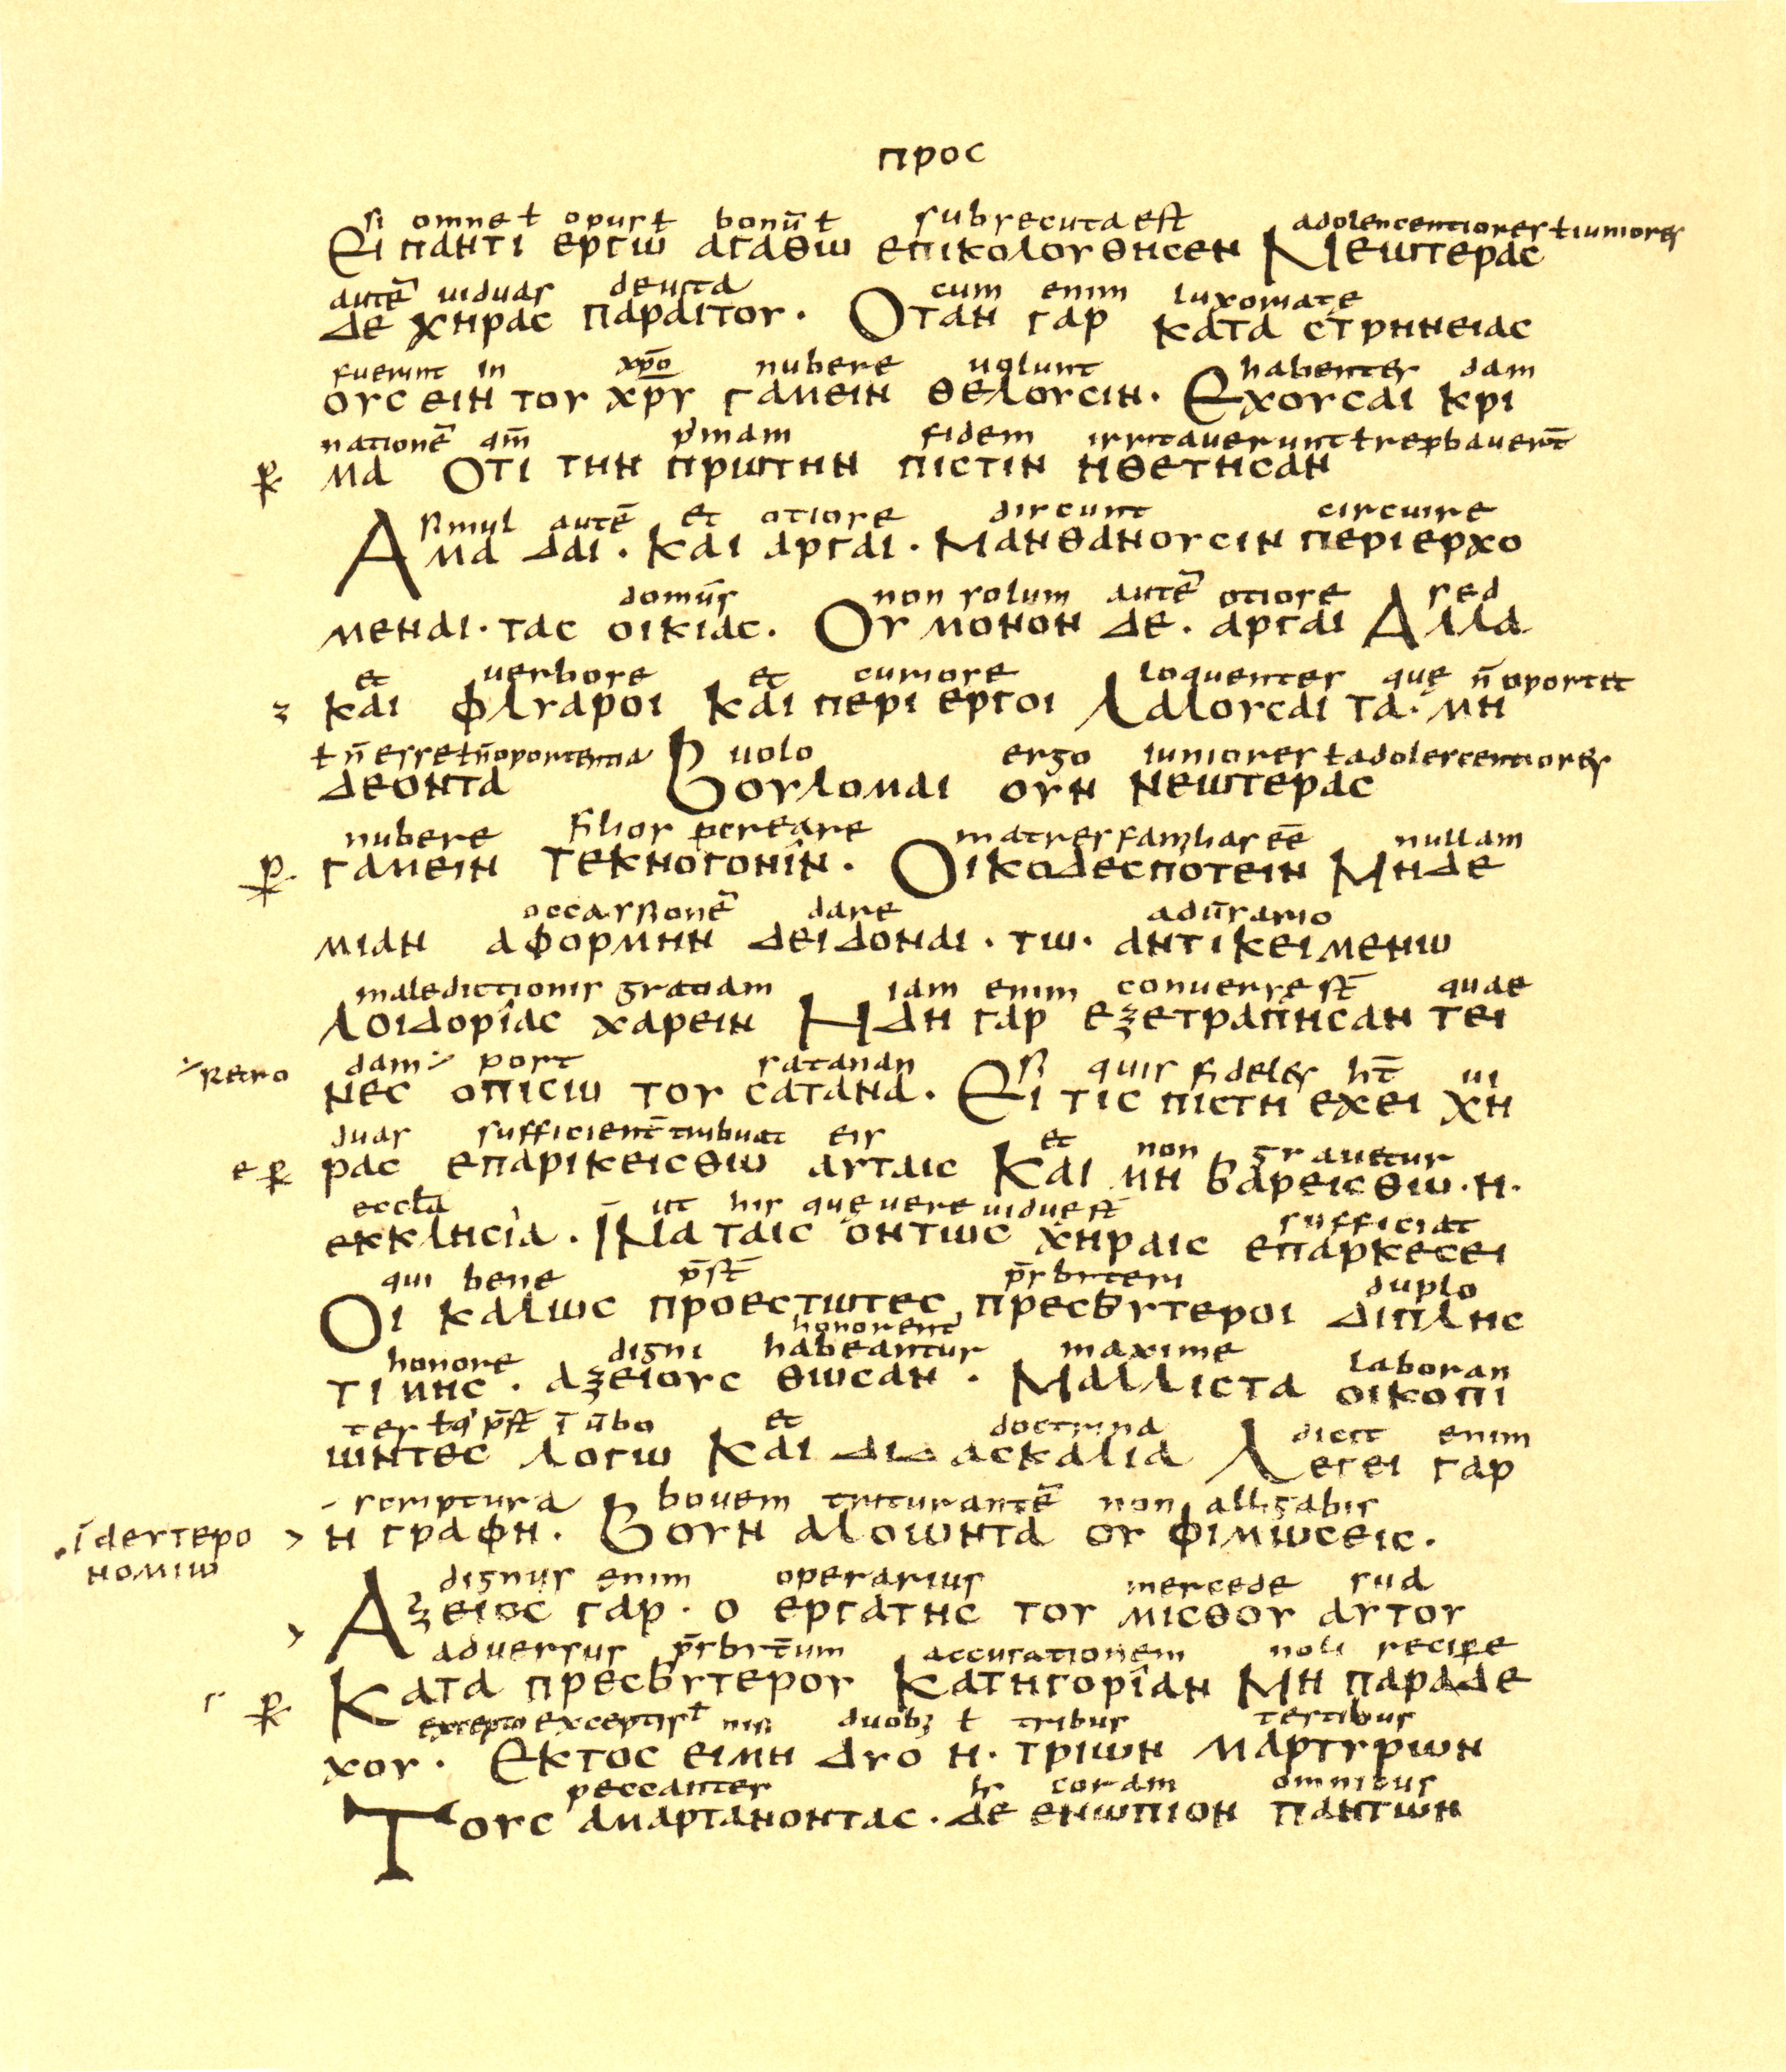 προс
si omne ł opus ł bonū ł subsecuta est adolescentiores ł iuniores
Ει παντι εργω αγαθω επικολογθησεν Νεωτερας
autē uiduas deuita cum enim luxoriate
δε χηρας παραιτογ. Οταν γαρ κατα στρηνειας
fuerint in xp̄o nubere uolunt habentes dam
ογσ ειν τογ χρ̄γ γαμειν θελογσιν. Εχογσαι κρι
nationē qm̄ p̓mam fidem irritauerunt ł reprobauer̄t
μα Οτι την πρωτην πιστιν ηθετησαν
simul autē et otiose discunt circuire
Αμα δαι. και αργαι. Μανθανογσιν περιερχο
domūs non solum autē otiose sed
μεναι. τας οικιας. Ογ μονον δε. αργαι Αλλα
et uerbose et curiose loquentes quę n̄ oportet
και φλγαροι και περι εργοι Λαλογσαι τα. μη
ł n̄ esse ł n̄ oportentia uolo ergo iuniores ł adolescentiores
δεοντα Βογλομαι ογν νεωτερας
nubere filios p̱creare matres familias eē nullam
γαμειν τεκνογονιν. Οικοδεσποτειν Μηδε
occassionē dare adūsario
μιαν αφορμην δειδοναι. τω. αντικειμενω
maledictionis gratiam iam enim conuersę st̄ quae
λοιδοριας χαρειν Ηδη γαρ εξετραπησαν τει
retro dam post satanan si quis fideles ht̄ ui
νες οπισω τογ σατανα. Ει τις πιστη εχει χη
duas sufficient̄ tribuat eis et non grauetur
ρας επαρικεισθω αγταις Και μη βαρεισθω. η.
eccl̄a ut his quę uere uiduę st̄ sufficiat
εκκλησια. Ινα ταις οντως χηραις επαρκεσει
qui bene p̄st̄ p̄rbiteri duplo
Οι καλως προεστωτες πρεσβγτεροι διπλης
honorent
honore digni habeantur maxime laboran
τιμης. αξειογσ θωσαν. Μαλλιστα οικοπι
tes ł q' p̄st̄ ī ūbo et doctrina dicit enim
ωντες λογω Και διδασκαλια Λεγει γαρ
scriptura bouem triturantē non alligabis
ī δεγτερο
νομιω
η γραφη. Βογν αλοωντα ογ φιμωσεις.
dignus enim operarius mercede sua
Αξειος γαρ. ο εργατης τογ μισθογ αγτογ
aduersus p̄rbit̄um accusationem noli recipe
Κατα πρεσβγτερογ Κατηγοριαν Μη παραδε
excepto exceptis ł nisi duobȝ ł tribus testibus
χογ. Εκτος ειμη δγο η. τριων μαρτγρων
peccantes h̵ coram omnibus
Τογσ αμαρτανοντας. δε ενωπιον παντων